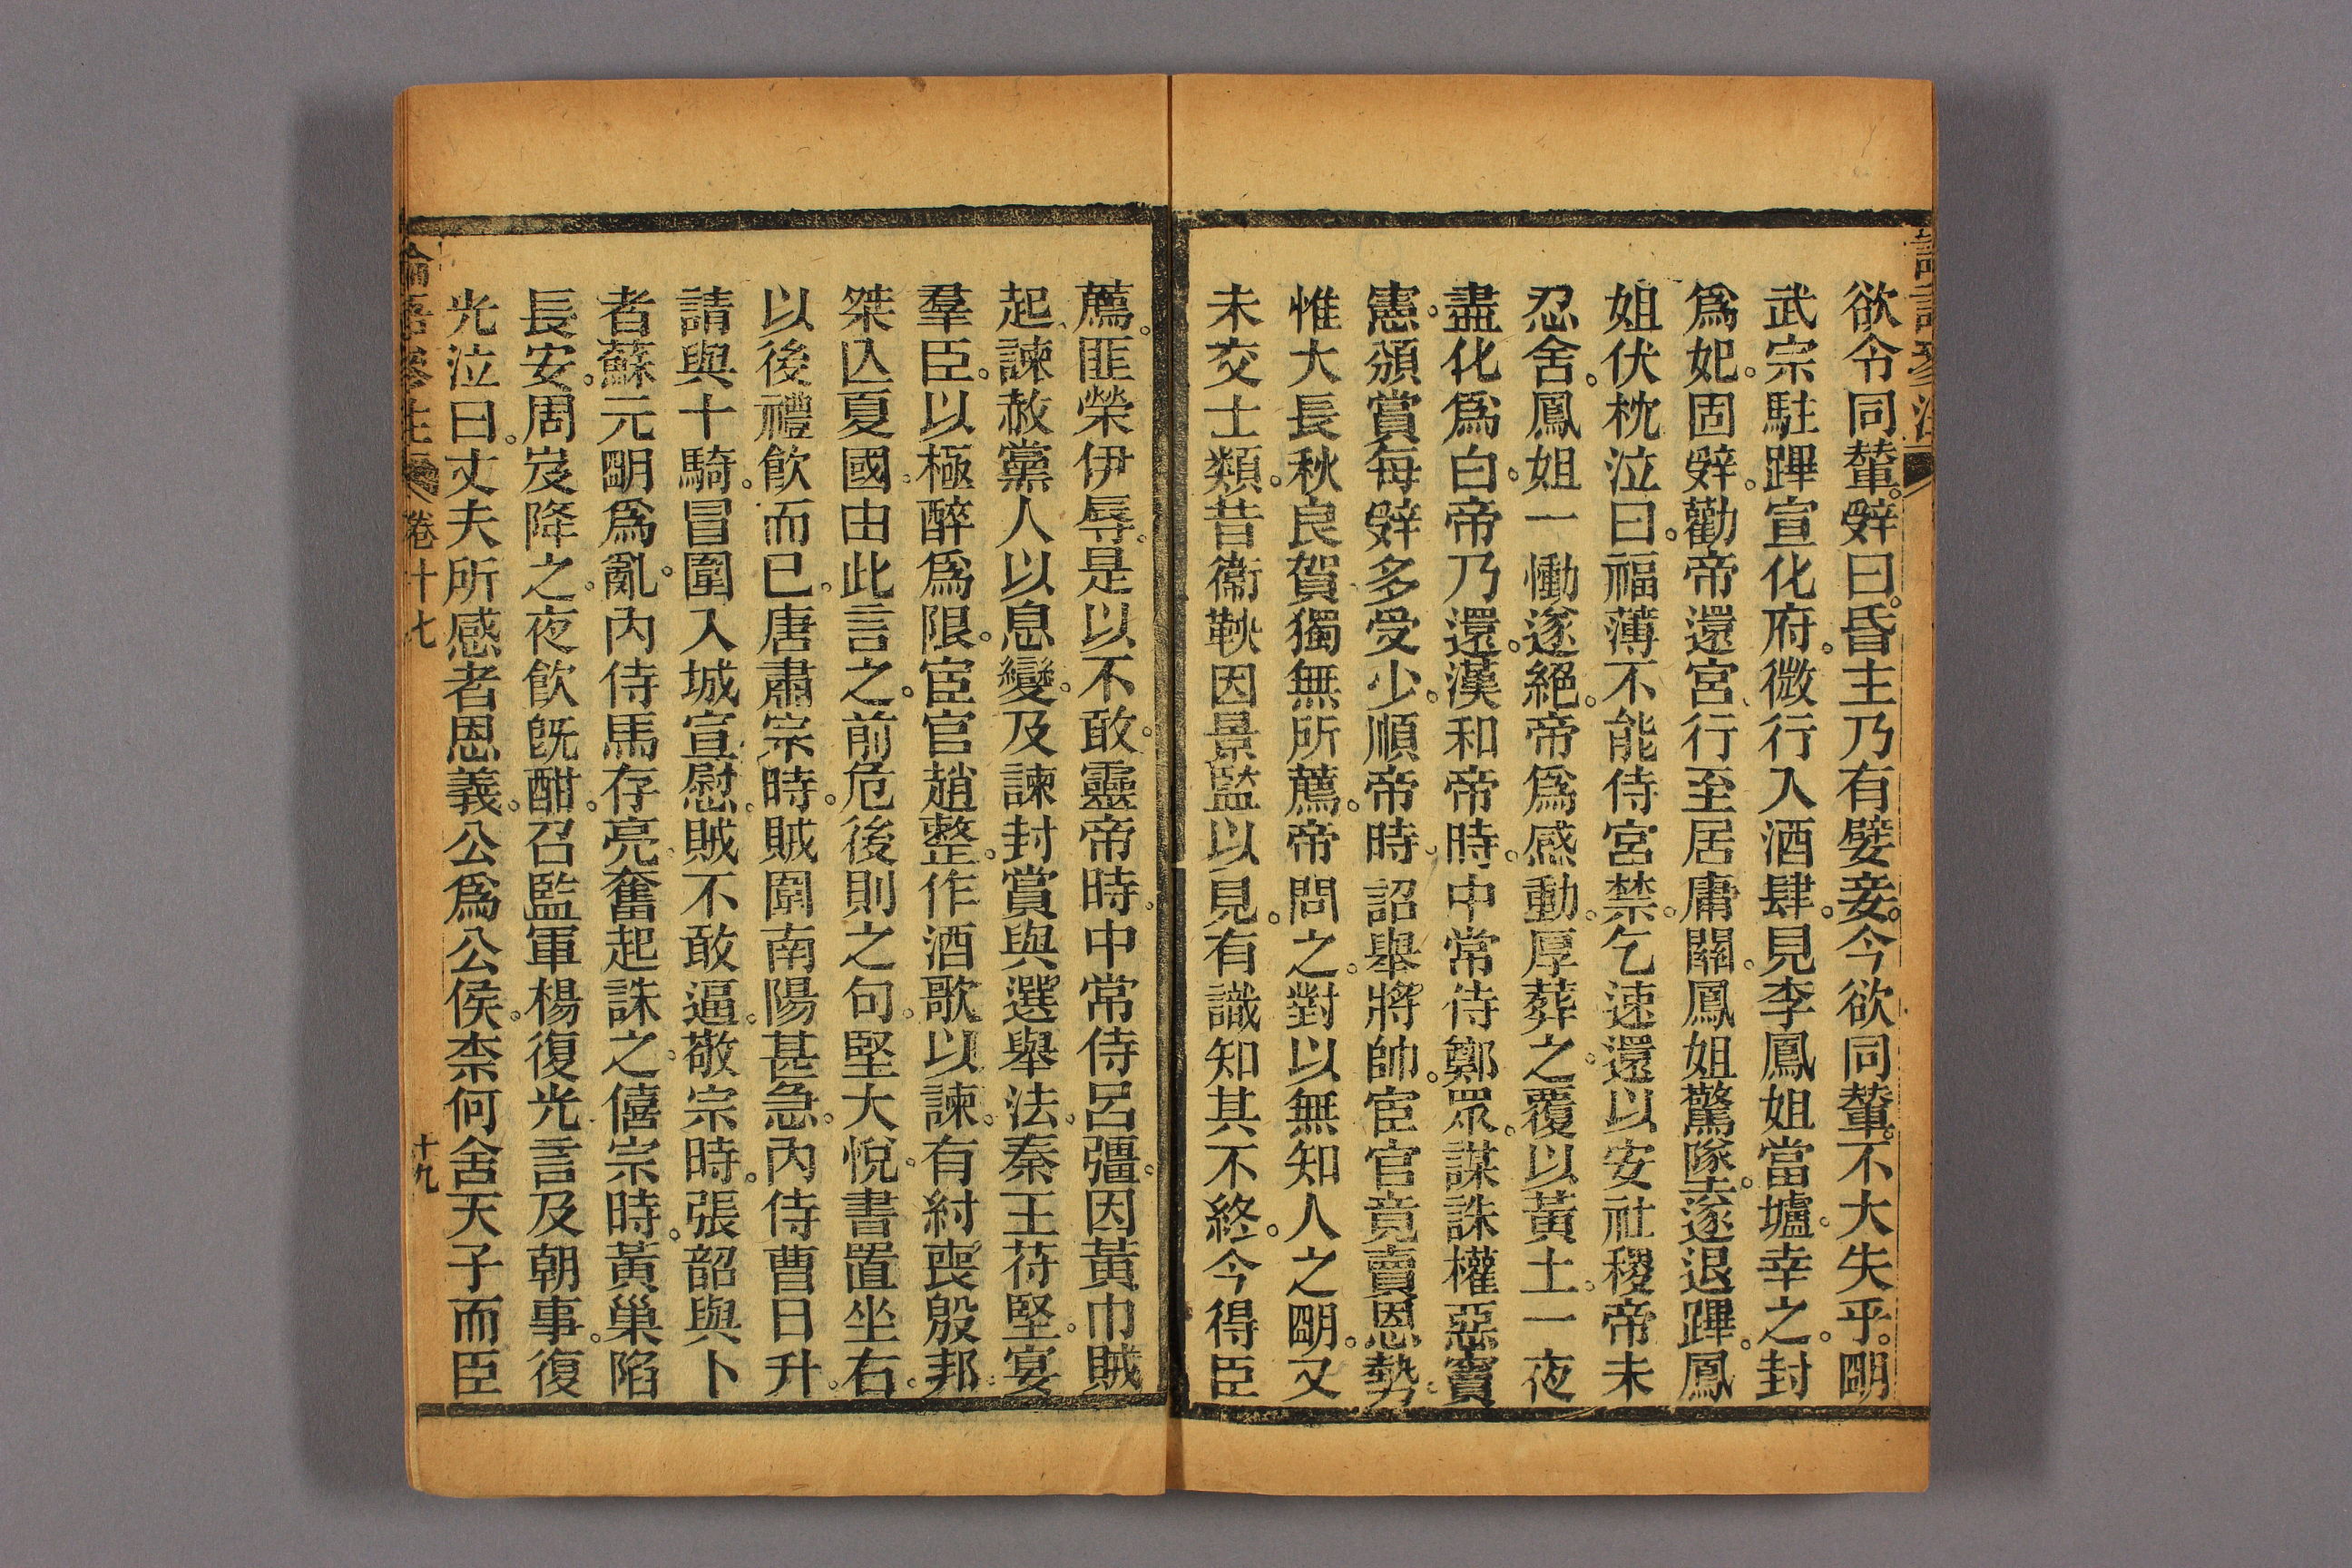 欲令同輦。辤曰。昏主乃有嬖妾。今欲同輦。不大失乎。朙
武宗駐蹕宣化府。微行入酒肆。見李鳳姐當壚。幸之。封
爲妃。固辤。勸帝還宮、行至居庸關。鳳姐驚墜。遂退蹕。鳳
姐伏枕泣曰。福薄不能侍宮禁。乞速還以安社稷帝未
忍舍。鳳姐一慟遂絕。帝爲感動。厚葬之。覆以黃土。一夜
盡化爲白。帝乃還。漢和帝時。中常侍鄭眾。謀誅權惡竇
憲。頒賞每辤多受少。順帝時。詔舉將帥。宦官竟賣恩勢。
惟大長秋良賀獨無所薦。帝問之。對以無知人之朙。又
未交士類。昔衞鞅因景監以見。有識知其不終。今得臣
薦。匪榮伊辱。是以不敢。靈帝時。中常侍呂彊。因黃巾賊
起、諫赦黨人以息變。及諫封賞與選舉法。秦王苻堅。宴
羣臣。以極醉爲限。宦官趙整。作酒歌以諫。有紂喪殷邦。
桀亾夏國。由此言之。前危後則之句。堅大悅。書置坐右。
以後禮飮而已。唐肅宗時。賊圍南陽甚急。內侍曹日升。
請與十騎。冒圍入城宣慰。賊不敢逼。敬宗時。張韶與卜
者蘇元朙爲亂。內侍馬存亮。奮起誅之。僖宗時。黃巢陷
長安。周岌降之。夜飮旣酣。召監軍楊復光言及朝事。復
光泣曰。丈夫所感者恩義。公爲公侯。柰何舍天子而臣
論語參註 卷十七 十九